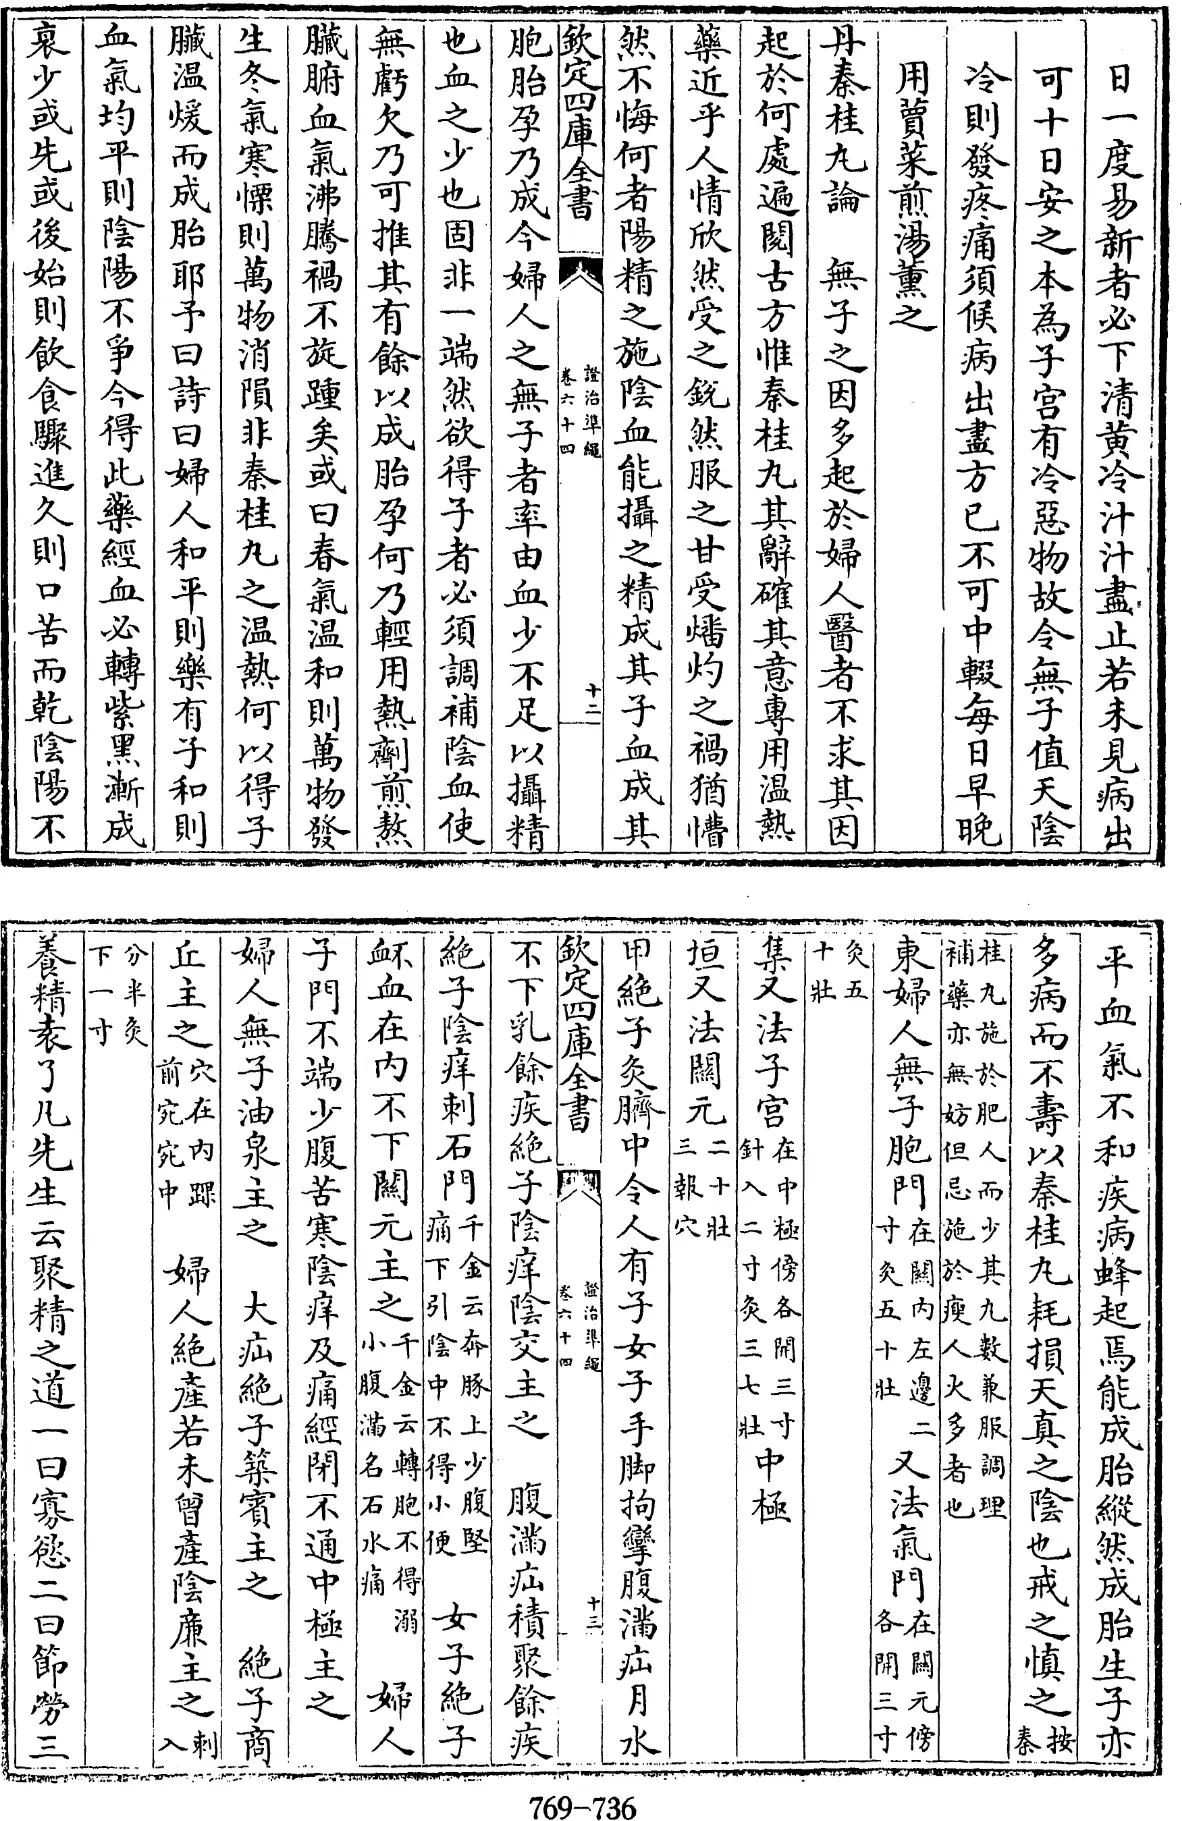 日一度易新者必下清黄冷汁汁盡止若未見病出
可十日安之本為子宮有冷惡物故令無子值天陰
冷則發疼痛須候病出盡方已不可中輟每日早晚
用葍菜煎湯薰之
丹秦桂丸論 無子之因多起於婦人醫者不求其因
起於何處遍閱古方惟秦桂丸其辭確其意專用温熱
藥近乎人情欣然受之鋭然服之甘受燔灼之禍猶懵
然不悔何者陽精之施陰血能攝之精成其子血成其
欽定四庫全書
證治準繩
卷六十四
十二
胞胎孕乃成今婦人之無子者率由血少不足以攝精
也血之少也固非一端然欲得子者必須調補陰血使
無虧欠乃可推其有餘以成胎孕何乃輕用熱劑煎熬
臟腑血氣沸騰禍不旋踵矣或曰春氣温和則萬物發
生冬氣寒慄則萬物消隕非秦桂丸之温熱何以得子
臟温煖而成胎耶予曰詩曰婦人和平則樂有子和則
血氣均平則陰陽不爭今得此藥經血必轉紫黑漸成
衰少或先或後始則飲食驟進久則口苦而乾陰陽不
平血氣不和疾病蜂起焉能成胎縱然成胎生子亦
多病而不壽以秦桂丸耗損天真之陰也戒之慎之按秦
桂丸施於肥人而少其丸數兼服調理
補藥亦無妨但忌施於瘦人火多者也
東婦人無子胞門在關内左邊二寸灸五十壯 又法氣門在關元傍各開三寸
灸五十壯
集又法子宮在中極傍各開三寸針入二寸灸三七壯中極
垣又法關元二十壯三報穴
甲絶子灸臍中令人有子女子手脚拘攣腹滿疝月水
欽定四庫全書
證治準繩
卷六十四
十三
不下乳餘疾絶子陰痒陰交主之 腹滿疝積聚餘疾
絶子陰痒刺石門千金云奔豚上少腹堅痛下引陰中不得小便 女子絶子
衃血在内不下關元主之千金云轉胞不得溺小腹滿名石水痛 婦人
子門不端少腹苦寒陰痒及痛經閉不通中極主之
婦人無子油泉主之 大疝絶子築賓主之 絶子商
丘主之穴在内踝前宛宛中 婦人絶產若未曾產陰廉主之刺入
分半灸下一寸
養精袁了凡先生云聚精之道一曰寡慾二曰節勞三
769-736